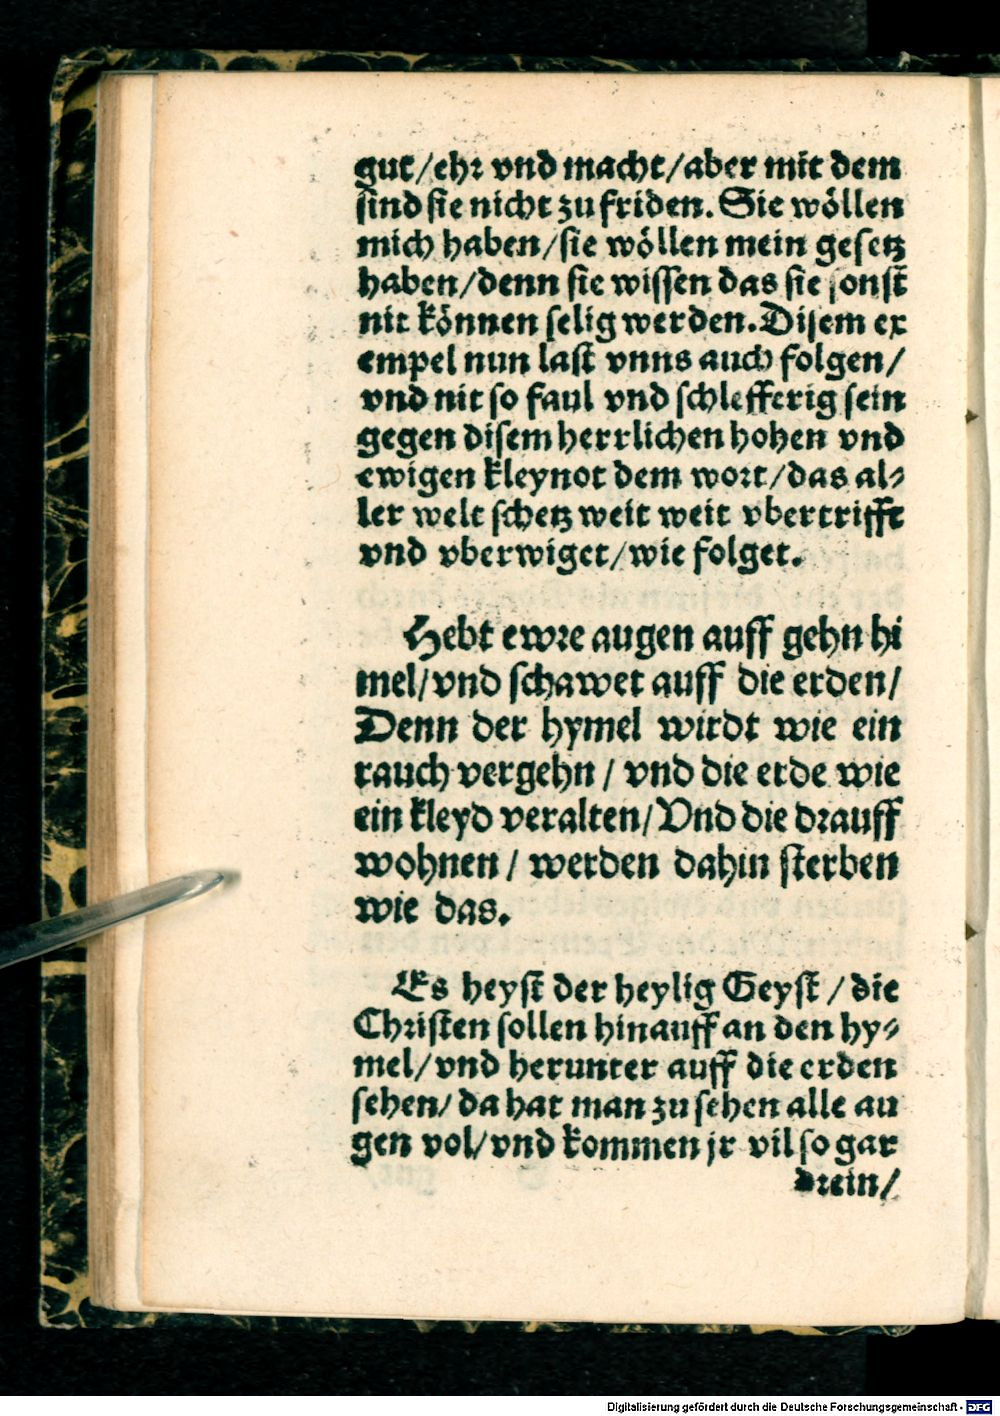 gut/ehr vnd macht/aber mit dem
sind sie nicht zu friden. Sie wöllen
mich haben/sie wöllen mein gesetz
haben/denn sie wissen das sie sonst
nit können selig werden. Disem ex
empel nun last vnns auch folgen/
vnd nit so faul vnd schlefferig sein
gegen disem herrlichen hohen vnd
ewigen kleynot dem wort/das al⸗
ler welt schetz weit weit vbertrifft
vnd vberwiget/wie folget.
Hebt ewre augen auff gehn hi
mel/vnd schawet auff die erden/
Denn der hymel wirdt wie ein
rauch vergehn/vnd die erde wie
ein kleyd veralten/Vnd die drauff
wohnen/werden dahin sterben
wie das.
Es heyst der heylig Geyst/die
Christen sollen hinauff an den hy⸗
mel/vnd herunter auff die erden
sehen/da hat man zu sehen alle au
gen vol/vnd kommen jr vil so gar
drein/
Digitalisierung gefördert durch die Deutsche Forschungsgemeinschaft - DFG